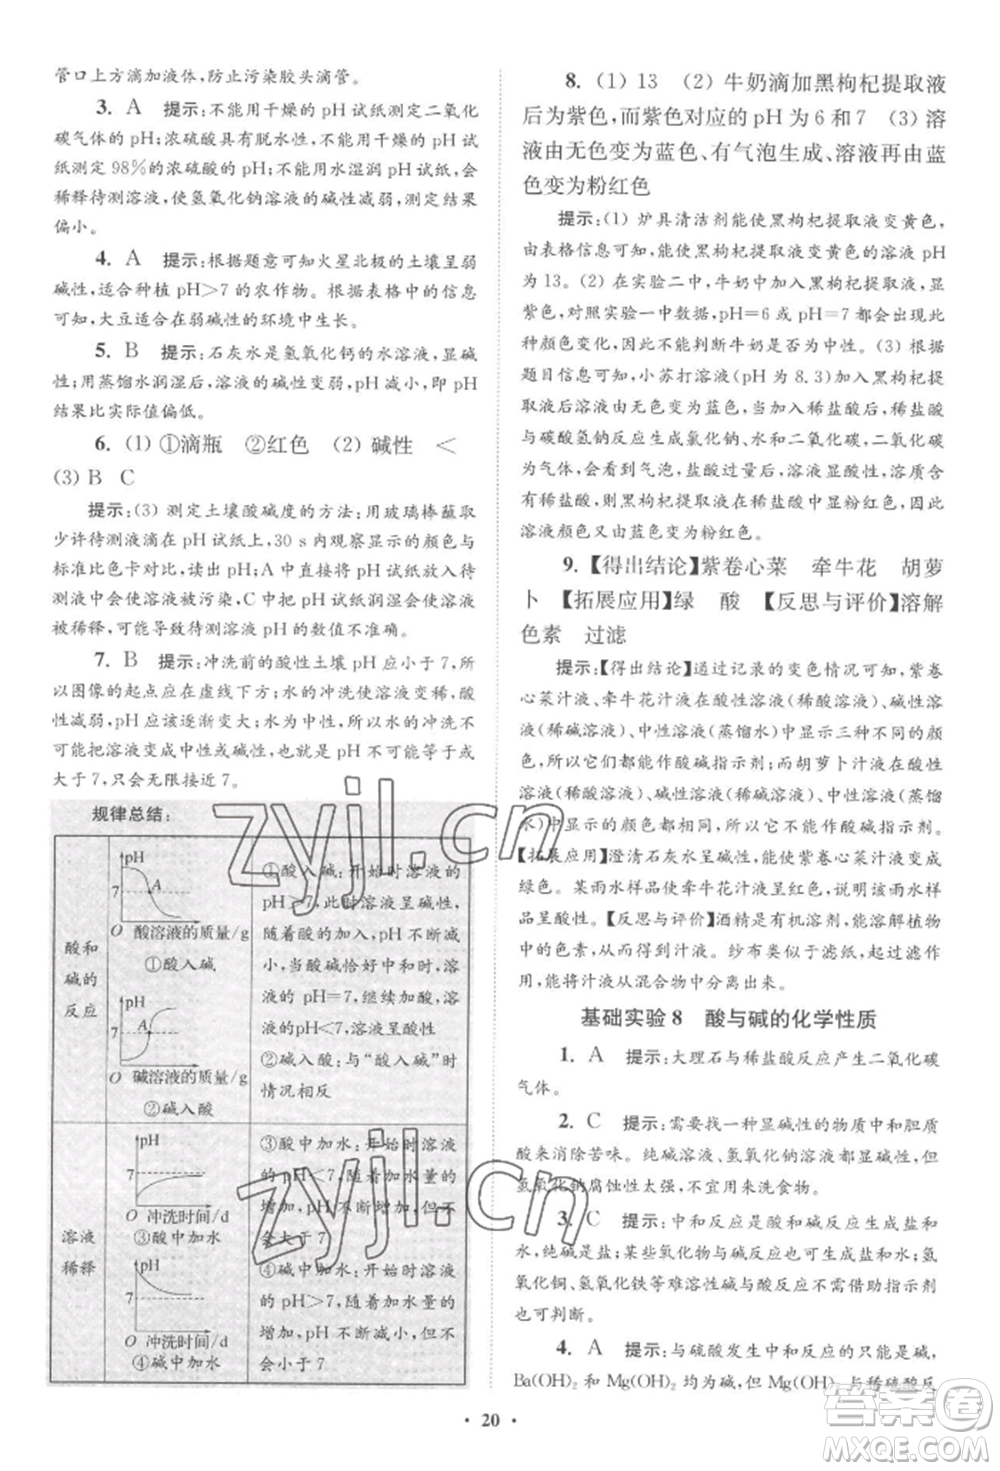 管口上方滴加液体,防止污染胶头滴管。
3. A 提示:不能用干燥的 pH 试纸测定二氧化
碳气体的 pH;浓硫酸具有脱水性,不能用干燥的 pH 试
纸测定 98%的浓硫酸的 pH;不能用水湿润 pH 试纸,会
稀释待测溶液,使氢氧化钠溶液的碱性减弱,测定结果
偏小。
4. A 提示:根据题意可知火星北极的土壤呈弱
碱性,适合种植 pH>7 的农作物。根据表格中的信息
可知,大豆适合在弱碱性的环境中生长。
5. B 提示:石灰水是氢氧化钙的水溶液,显碱
性;用蒸馏水润湿后,溶液的碱性变弱,pH 减小,则 pH
结果比实际值偏低。
6. (1) ①滴瓶 ②红色 (2) 碱性 <
(3) B C
提示:(3) 测定土壤酸碱度的方法:用玻璃棒蘸取
少许待测液滴在 pH 试纸上,30 s 内观察显示的颜色与
标准比色卡对比,读出 pH;A 中直接将 pH 试纸伸入待
测液中,会使溶液被污染,C 中把 pH 试纸润湿会使溶液
被稀释,可能会导致待测溶液 pH 的数值不准确。
7. B 提示:冲洗前的酸性土壤 pH 应小于 7,所
以图像的起点应在虚线下方;水的冲洗使溶液变稀,酸
性减弱,pH 应该逐渐变大;水为中性,所以水的冲洗不
可能把溶液变成中性或碱性,也就是 pH 不可能等于或
大于 7,只会无限接近 7。
规律总结:
酸和
碱的
反应
pH
7
A
O 酸溶液的质量/g
①酸入碱
pH
7
A
O 碱溶液的质量/g
②碱入酸
①酸入碱:开始时溶液的
pH>7,此时溶液呈碱性,
随着酸的加入 pH 不断减
小,当酸碱恰好中和时,溶
液的 pH=7,继续加酸,溶
液的 pH<7,溶液呈酸性
②碱入酸:与“酸入碱”时
情况相反
溶液
稀释
pH
7
O 冲洗时间/d
③酸中加水
pH
7
O 冲洗时间/d
④碱中加水
③酸中加水:开始时溶液
的 pH<7,随着加水量的
增加,pH 不断增大,但不
会大于 7
④碱中加水:开始时溶液
的 pH>7,随着加水量的
增加,pH 不断减小,但不
会小于 7
8. (1) 13 (2) 牛奶滴加黑枸杞提取液
后为紫色,而紫色对应的 pH 为 6 和 7 (3) 溶
液由无色变为蓝色、有气泡生成、溶液再由蓝
色变为粉红色
提示:(1) 炉具清洁剂能使黑枸杞提取液变黄色,
由表格信息可知,能使黑枸杞提取液变黄色的溶液 pH
为 13。(2) 在实验二中,牛奶能使黑枸杞提取液显
紫色,对照实验一中的数据,pH=6 或 pH=7 都会出现此
种颜色变化,因此不能判断牛奶是否为中性。(3) 根据
题目信息和表格数据可知,小苏打溶液(pH 为 8.3)加入黑枸杞
后溶液由无色变为蓝色,当加入稀盐酸时,稀盐酸
与碳酸氢钠反应,生成氯化钠、水和二氧化碳,二氧化碳
为气体,会看到冒气泡,盐酸过量时,溶液变为酸性,含
有稀盐酸,则黑枸杞提取液与稀盐酸作用显粉红色,因此
溶液颜色又由蓝色变为粉红色。
9. 【得出结论】紫卷心菜 牵牛花 胡萝
卜 【拓展应用】绿 酸 【反思与评价】溶解
色素 过滤
提示:【得出结论】通过记录的变色情况可知,紫卷
心菜汁液、牵牛花汁液在酸性溶液(稀盐酸)、碱性溶液
(石灰水)、中性溶液(蒸馏水)中显示的颜色各不相同,
所以能用作酸碱指示剂;而胡萝卜汁液在酸性溶液(稀
盐酸)、碱性溶液(石灰水)、中性溶液(蒸馏
水)中显示的颜色都相同,所以不能用作酸碱指示剂。
【拓展应用】澄清石灰水呈碱性,能使紫卷心菜汁液变成
绿色。某雨水样品使牵牛花汁液变成红色,说明该雨水样
品呈酸性。【反思与评价】酒精是有机溶剂,能溶解植物
中的色素,从而得到汁液。纱布类似于滤纸,起过滤作
用,能将汁液从混合物中分离出来。
基础实验 8 酸与碱的化学性质
1. A 提示:大理石与稀盐酸反应产生二氧化碳
气体。
2. C 提示:需要找一种显碱性的物质中和胆质
酸来消除苦味。纯碱溶液、氢氧化钠溶液显碱性,但氢
氧化钠腐蚀性太强,不宜用来洗食物。
3. C 提示:中和反应是酸和碱反应生成盐和
水,纯碱是盐;某些中和反应需要借助于指示剂,氢
氧化铜、氢氧化铁等难溶性碱与酸反应不用指示剂
也可判断。
4. A 提示:与硫酸发生中和反应的只能是碱,
Ba(OH)₂ 和 Mg(OH)₂ 均为碱,但 Mg(OH)₂ 与稀硫酸反
· 20 ·
zyjl.cn
zyjl.cn
答案圈
MXQE.COM